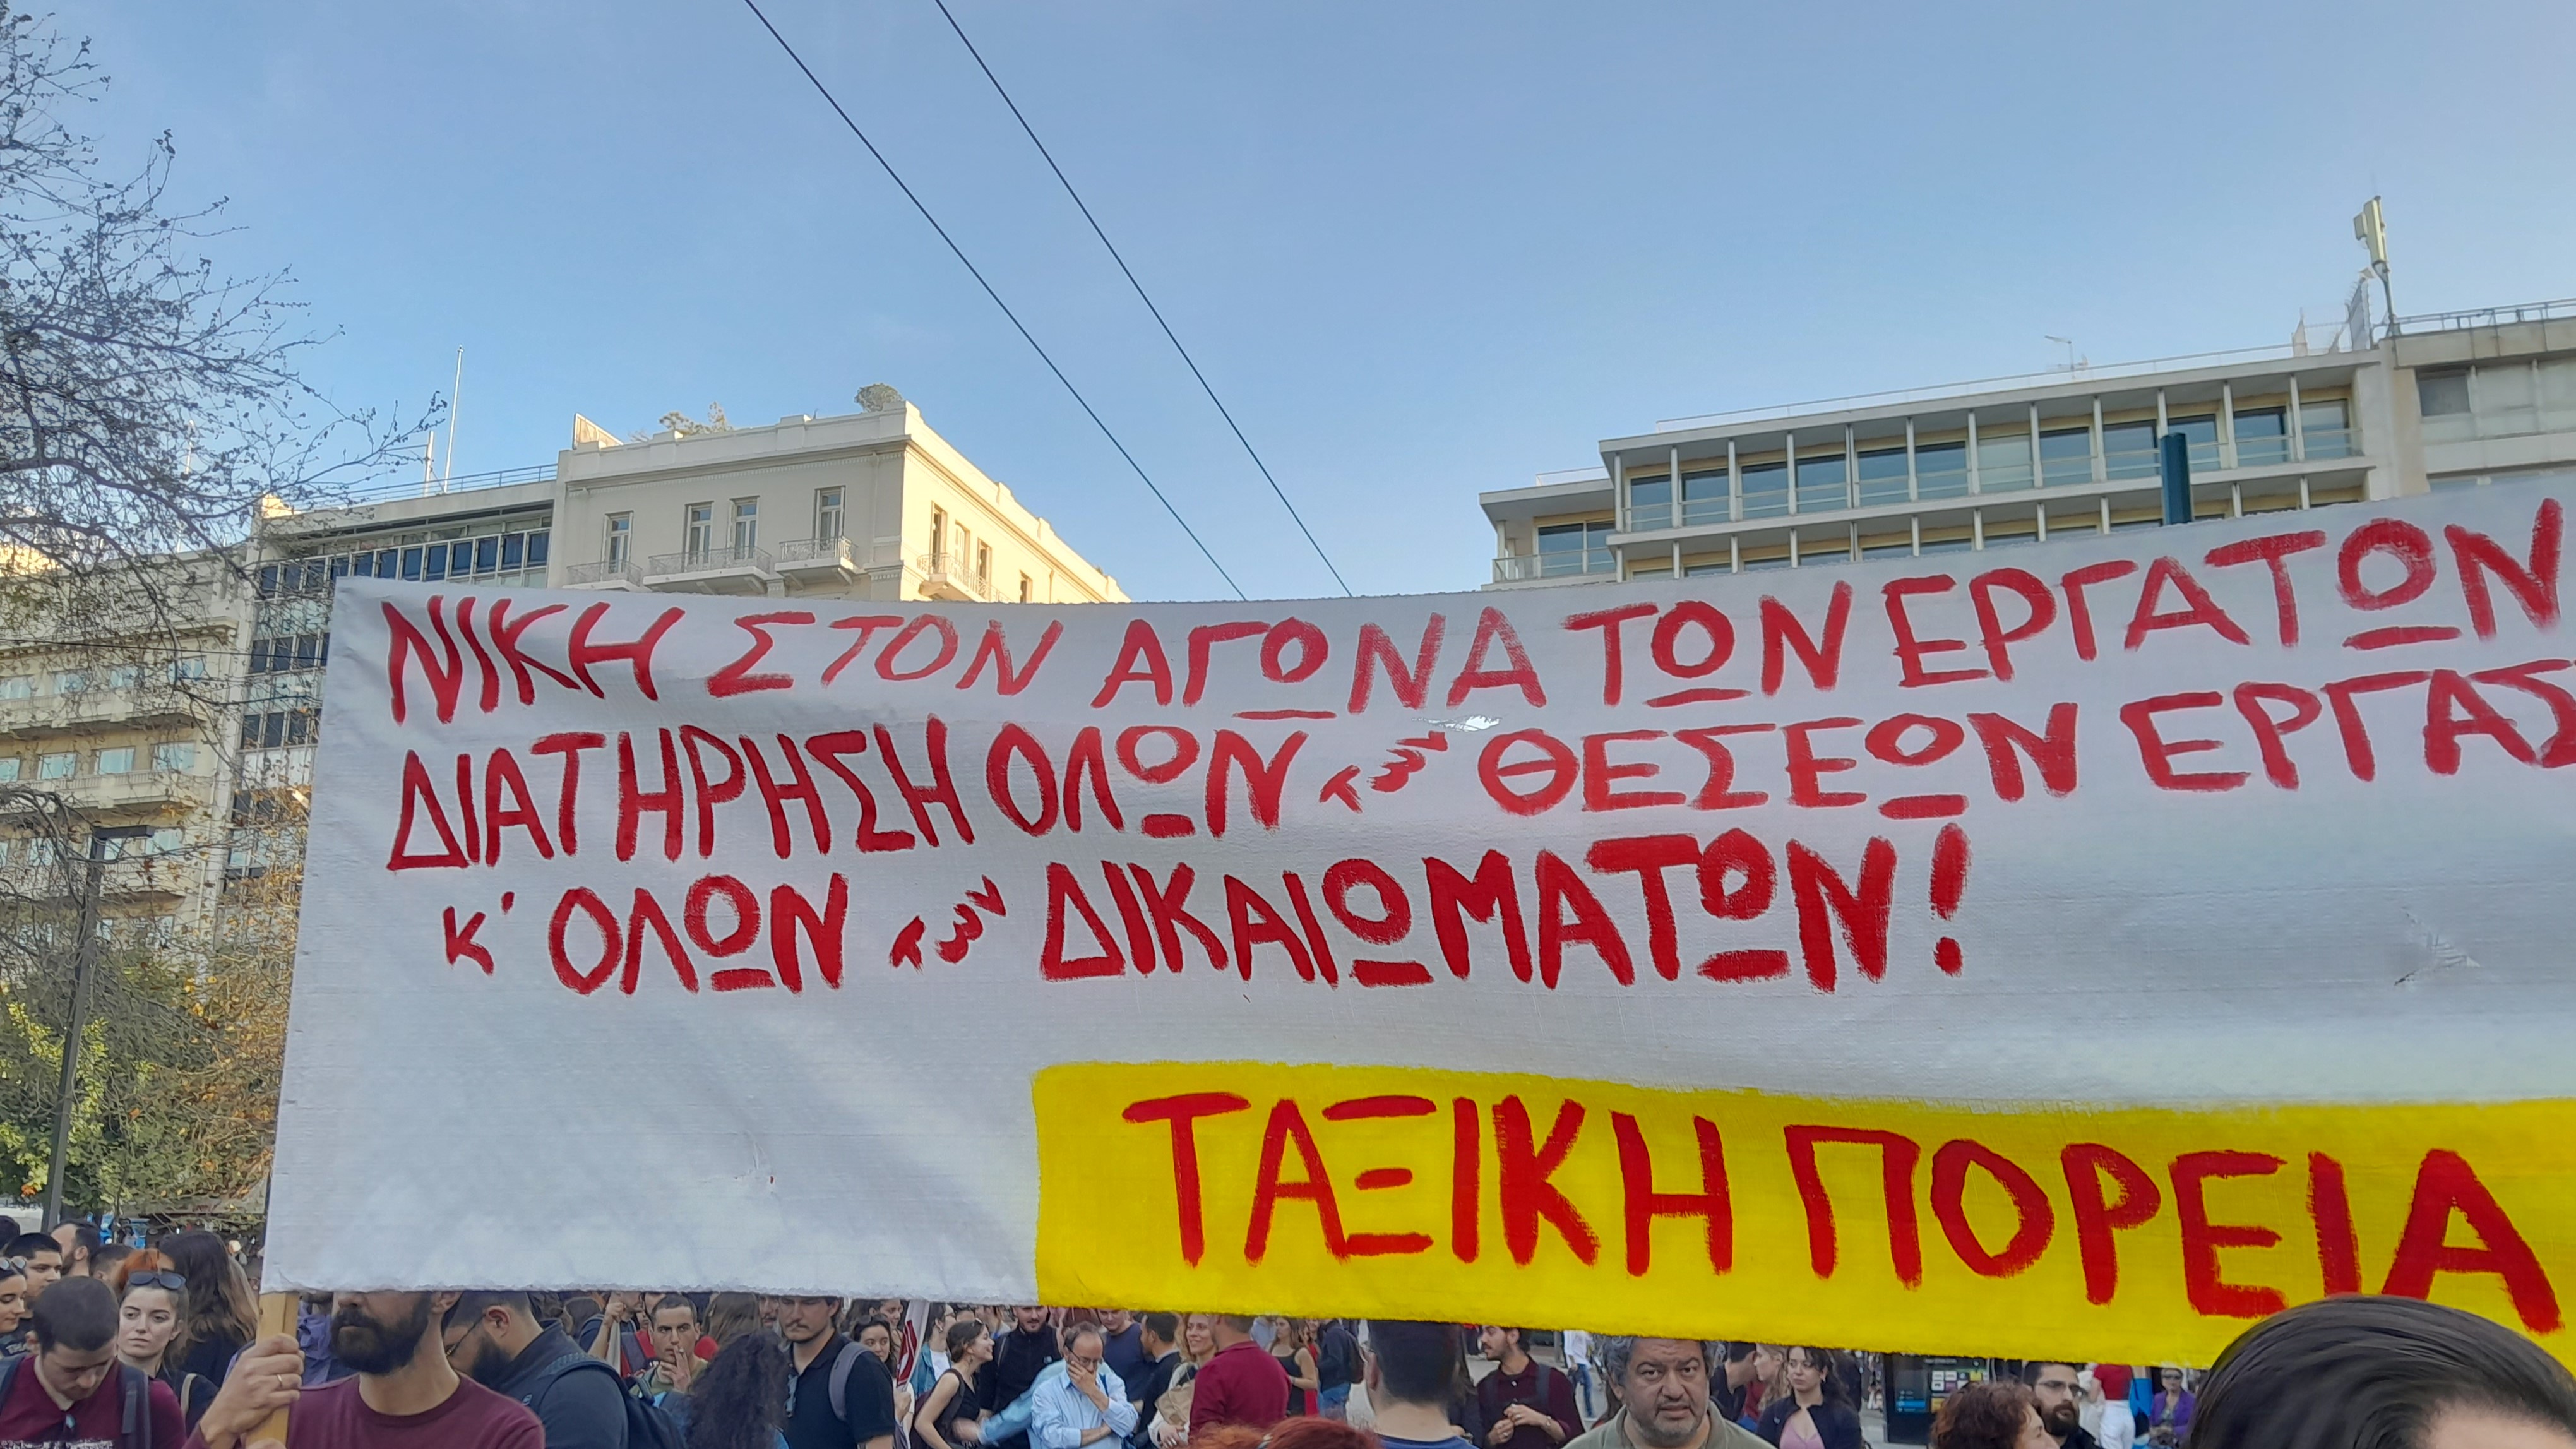 ΝΙΚΗ ΣΤΟΝ ΑΓΩΝΑ ΤΩΝ ΕΡΓΑΤΩΝ
ΔΙΑΤΗΡΗΣΗ ΟΛΩΝ των ΘΕΣΕΩΝ ΕΡΓΑΣ
Κ' ΟΛΩΝ των ΔΙΚΑΙΩΜΑΤΩΝ!
ΤΑΞΙΚΗ ΠΟΡΕΙΑ